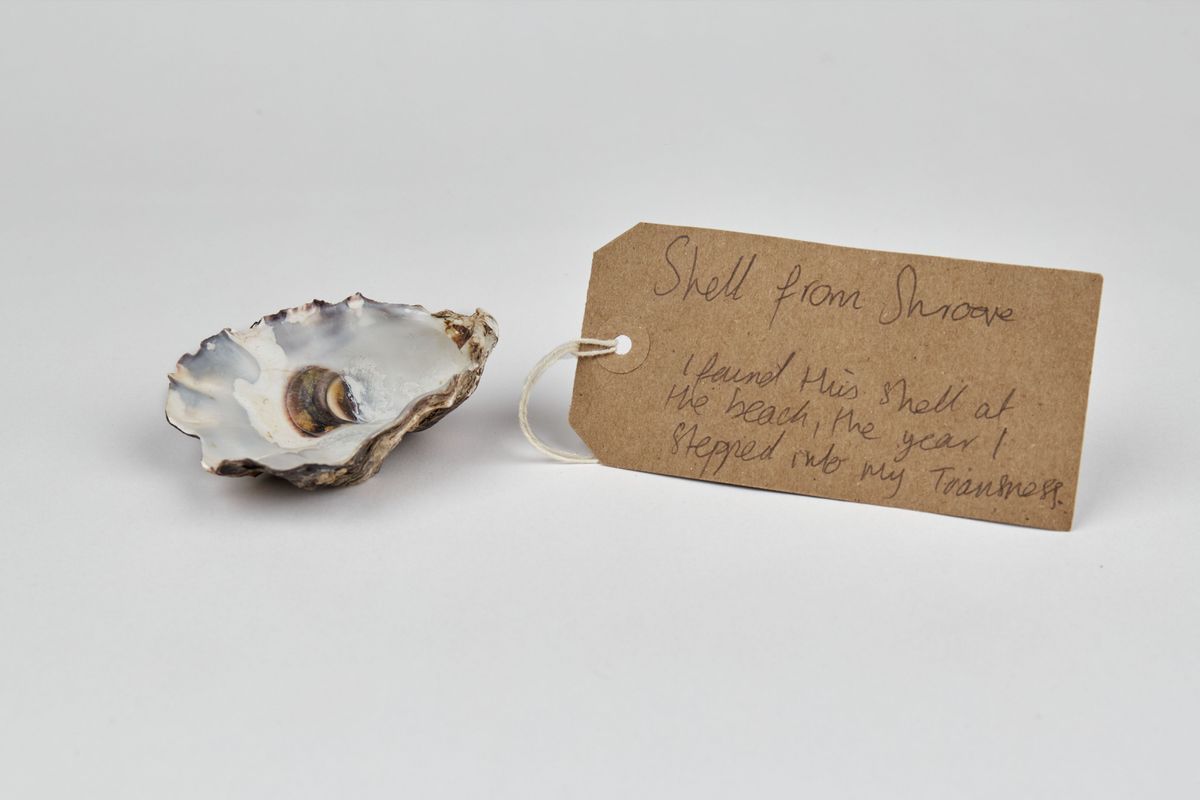 Shell from Shroove
I found this shell at
the beach, the year I
stepped into my Transness.